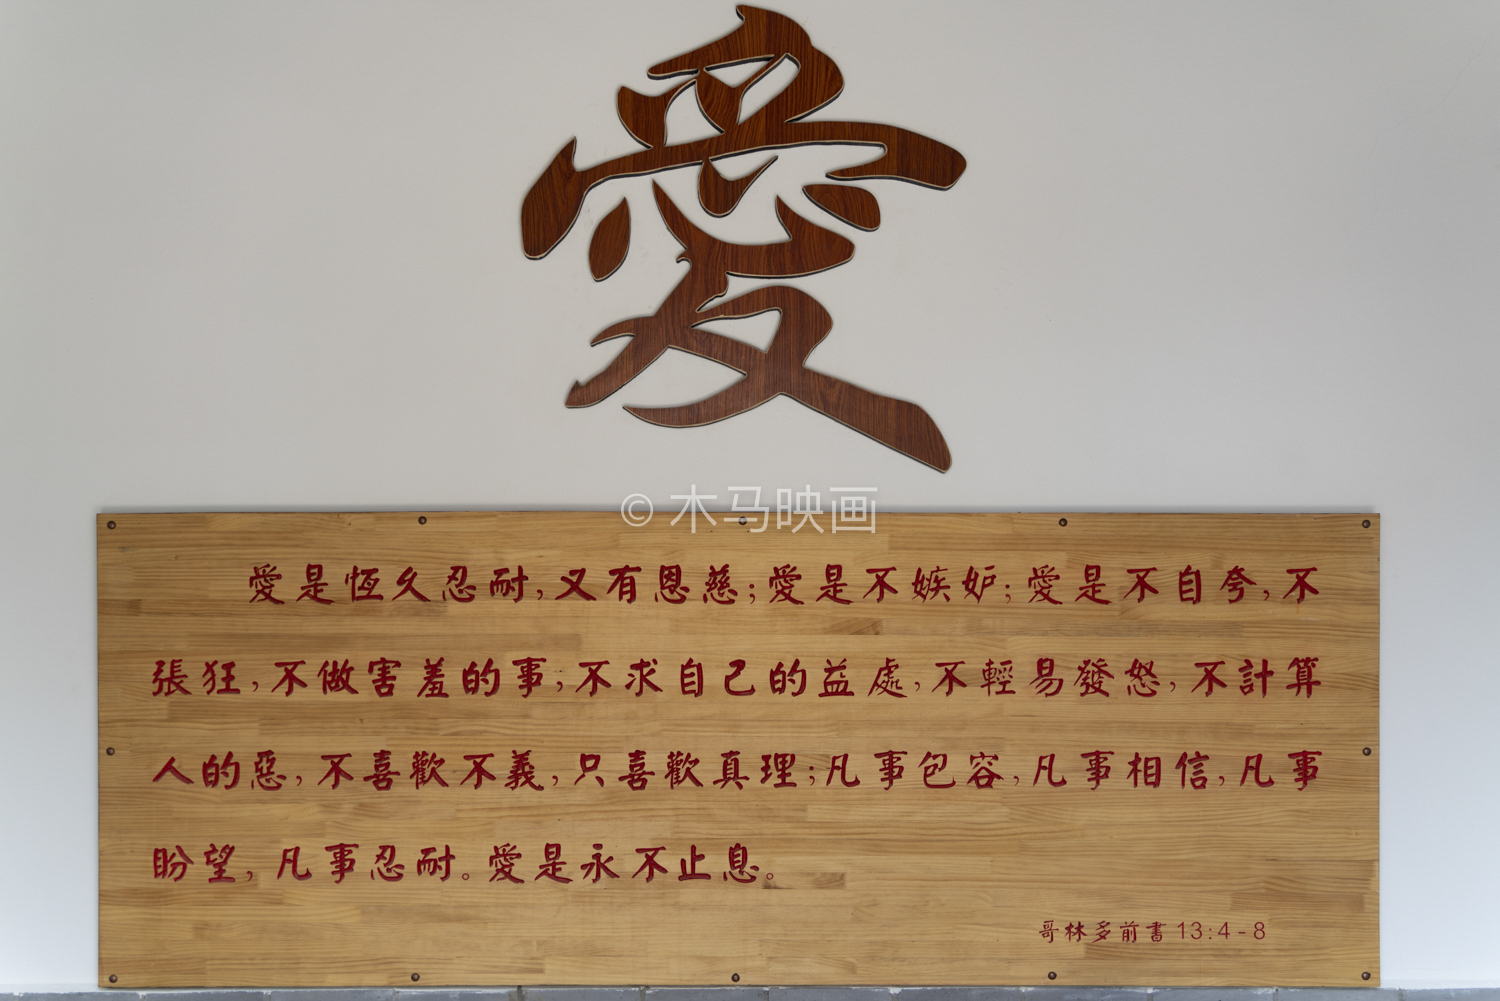 愛
© 木马映画
愛是恆久忍耐,又有恩慈;愛是不嫉妒;愛是不自夸,不
張狂,不做害羞的事;不求自己的益處,不輕易發怒,不計算
人的惡,不喜歡不義,只喜歡真理;凡事包容,凡事相信,凡事
盼望,凡事忍耐。愛是永不止息。
哥林多前書 13:4-8